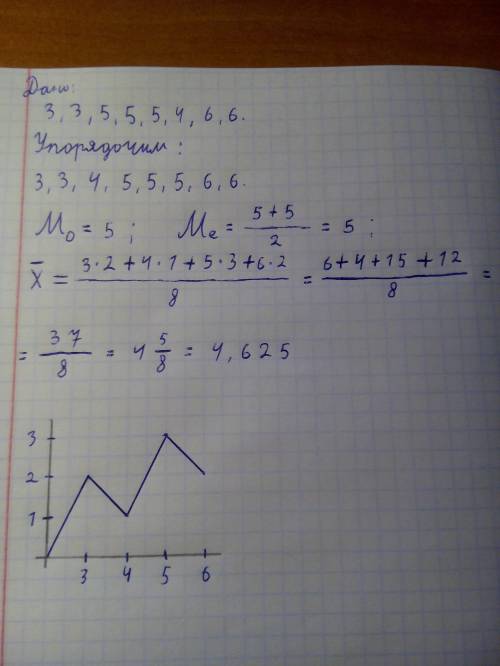 Дано:
3, 3, 5, 5, 5, 4, 6, 6.
Упорядочим:
3, 3, 4, 5, 5, 5, 6, 6.
M₀ = 5; Me = (5+5)/2 = 5;
X̅ = (3·2+4·1+5·3+6·2)/8 = (6+4+15+12)/8 =
= 37/8 = 4 5/8 = 4,625
3
2
1
3 4 5 6